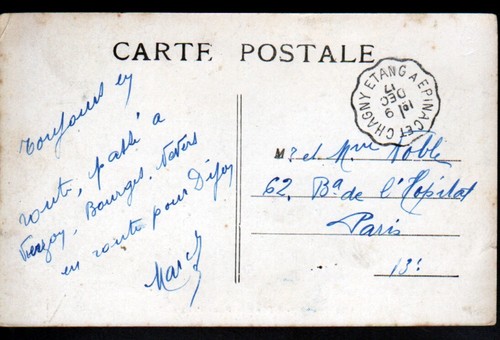 CARTE POSTALE
CHAGNY ETANG A EPINAC ET
1er
9
DEC
17
Toujours en
route, passé à
Bourges, Nevers
en route pour Dijon
Marcel
Mr et Mme Noble
62, Bd de l'Hôpital
Paris
13e